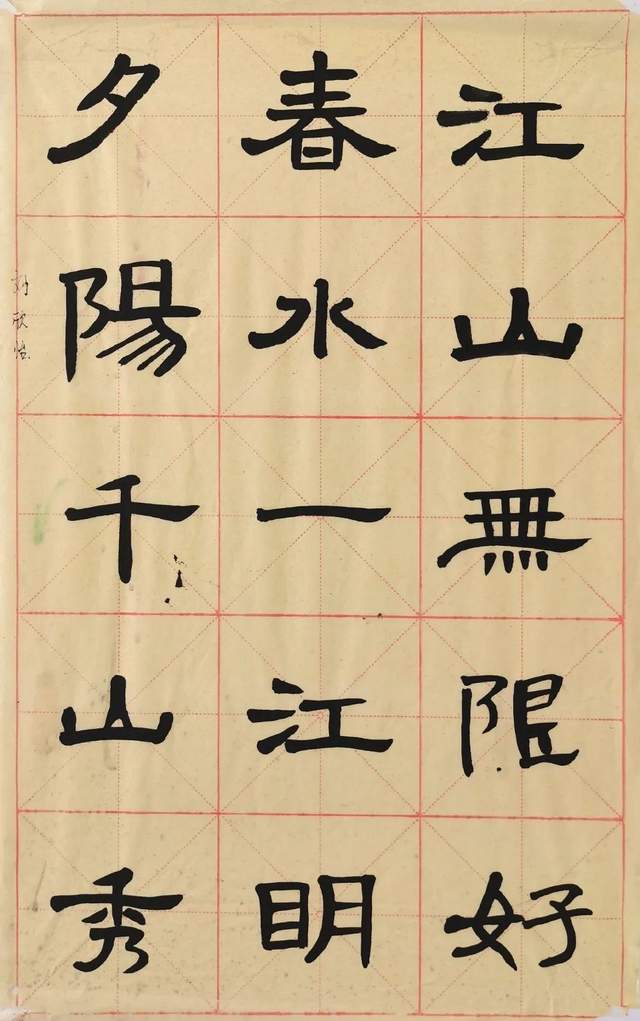 江山無限好
春水一江明
夕陽千山秀
孙欣怡